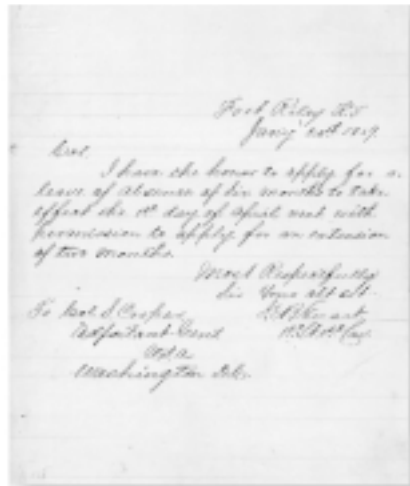 Fort Riley K.T.
Jany 20th 1859
Col.
I have the honor to apply for a
leave of absence of six months to take
effect the 1st day of April next with
permission to apply for an extension
of two months.
Most Respectfully
Sir Your obt st.
To Col. S. Cooper
1st Cav
Adjutant Genl
U.S.A.
Washington D.C.